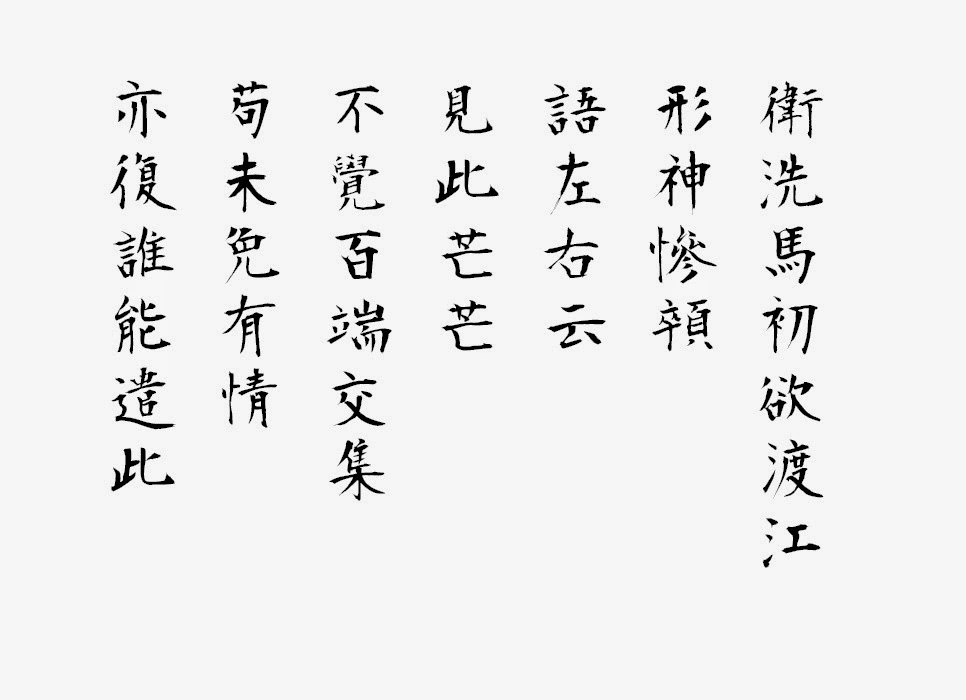 衛洗馬初欲渡江
形神慘顇
語左右云
見此芒芒
不覺百端交集
苟未免有情
亦復誰能遣此